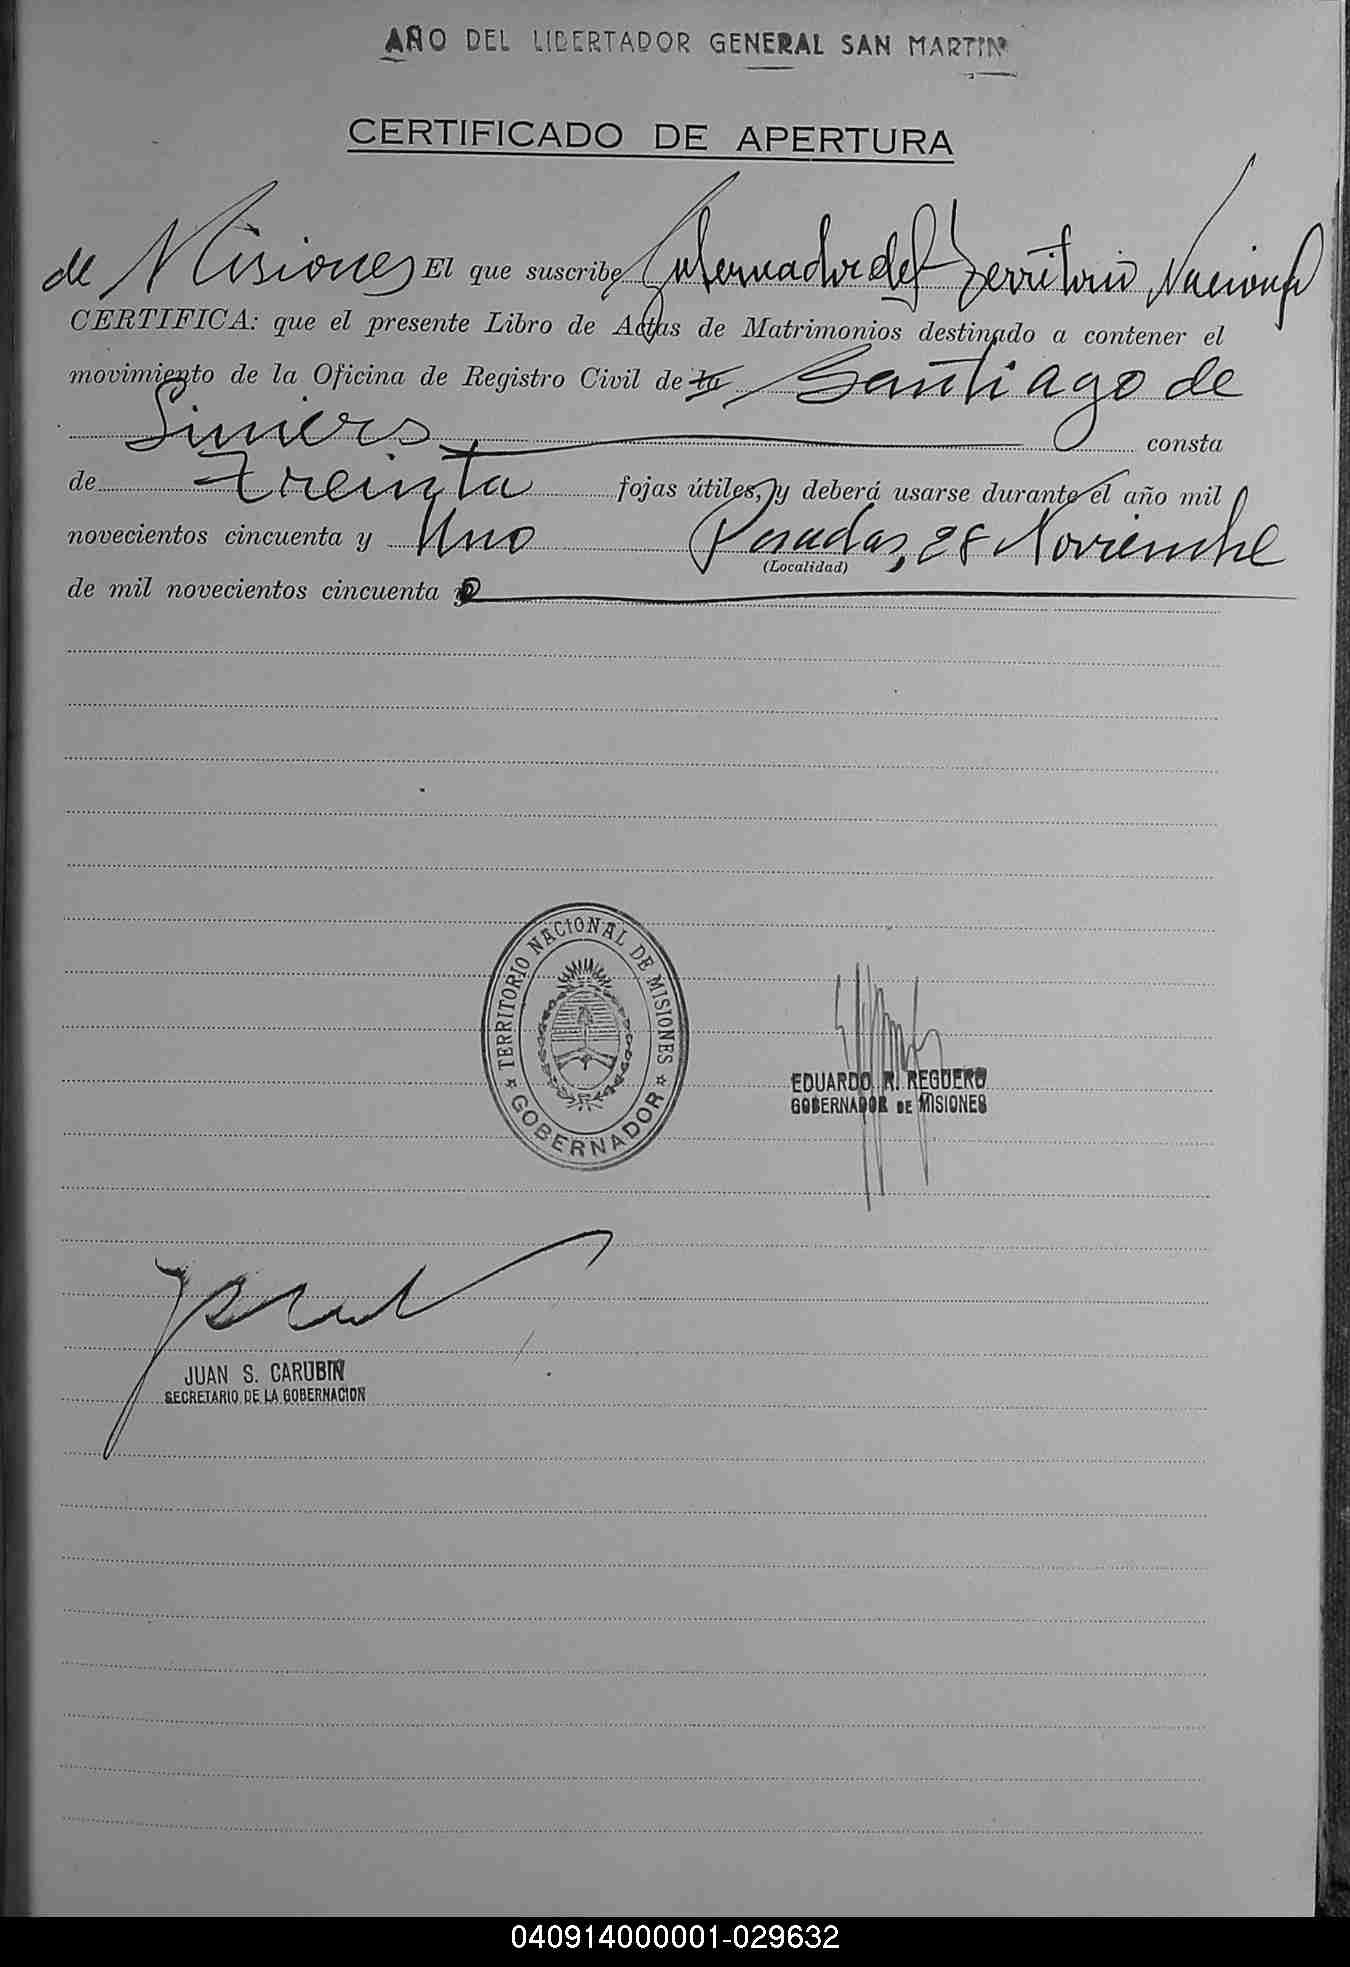 AÑO DEL LIBERTADOR GENERAL SAN MARTIN
CERTIFICADO DE APERTURA
de Misiones El que suscribe Gobernador del Territorio Nacional
CERTIFICA: que el presente Libro de Actas de Matrimonios destinado a contener el
movimiento de la Oficina de Registro Civil de la Santiago de
Liniers consta
de treinta fojas útiles, y deberá usarse durante el año mil
novecientos cincuenta y Uno Posadas, 28 Noviembre
(Localidad)
de mil novecientos cincuenta
TERRITORIO NACIONAL DE MISIONES
GOBERNADOR
EDUARDO R. REGUERO
GOBERNADOR DE MISIONES
JUAN S. CARUBIN
SECRETARIO DE LA GOBERNACION
040914000001-029632